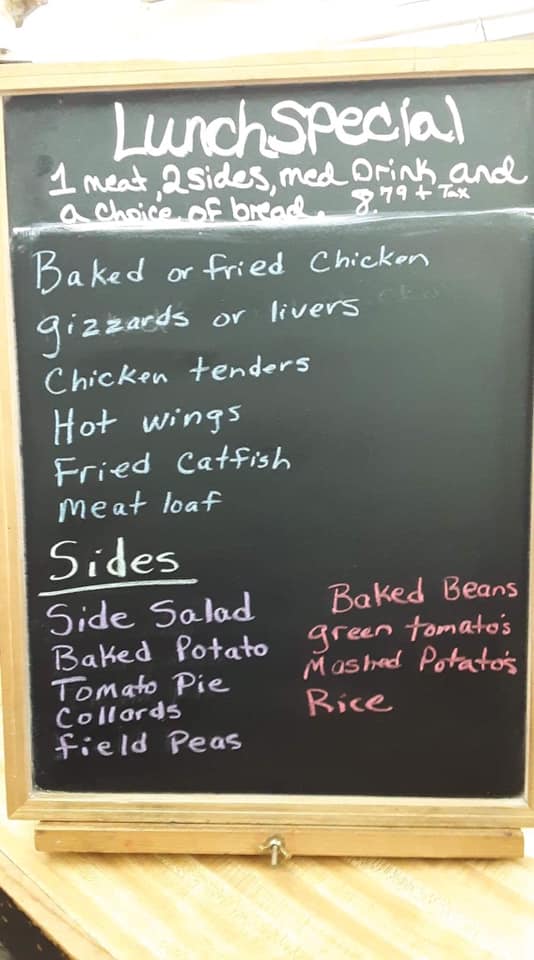 Lunch Special
1 meat, 2 sides, med Drink and
a choice of bread. 8.79 + Tax
Baked or fried Chicken
gizzards or livers
Chicken tenders
Hot wings
Fried Catfish
Meat loaf
Sides
Side Salad
Baked Potato
Tomato Pie
Collards
field Peas
Baked Beans
green tomato's
Mashed Potato's
Rice